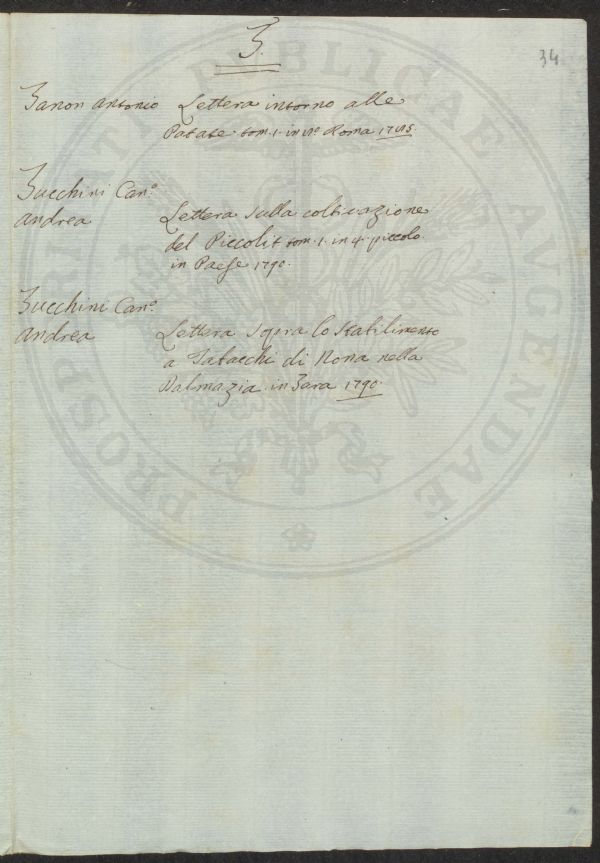 Z.
34
Zanon Antonio Lettera intorno alle
Patate tom. 1. in 12º Roma
Zucchini Canº.
Andrea Lettera sulla coltivazione
del Piccolit tom. 1. in 4. piccolo
in Paese 1790.
Zucchini Canº.
Andrea Lettera sopra lo Stabilimento
a Tabacchi di Nona nella
Dalmazia in Zara 1790.
PROSPERITATI PUBLICAE AUGENDAE